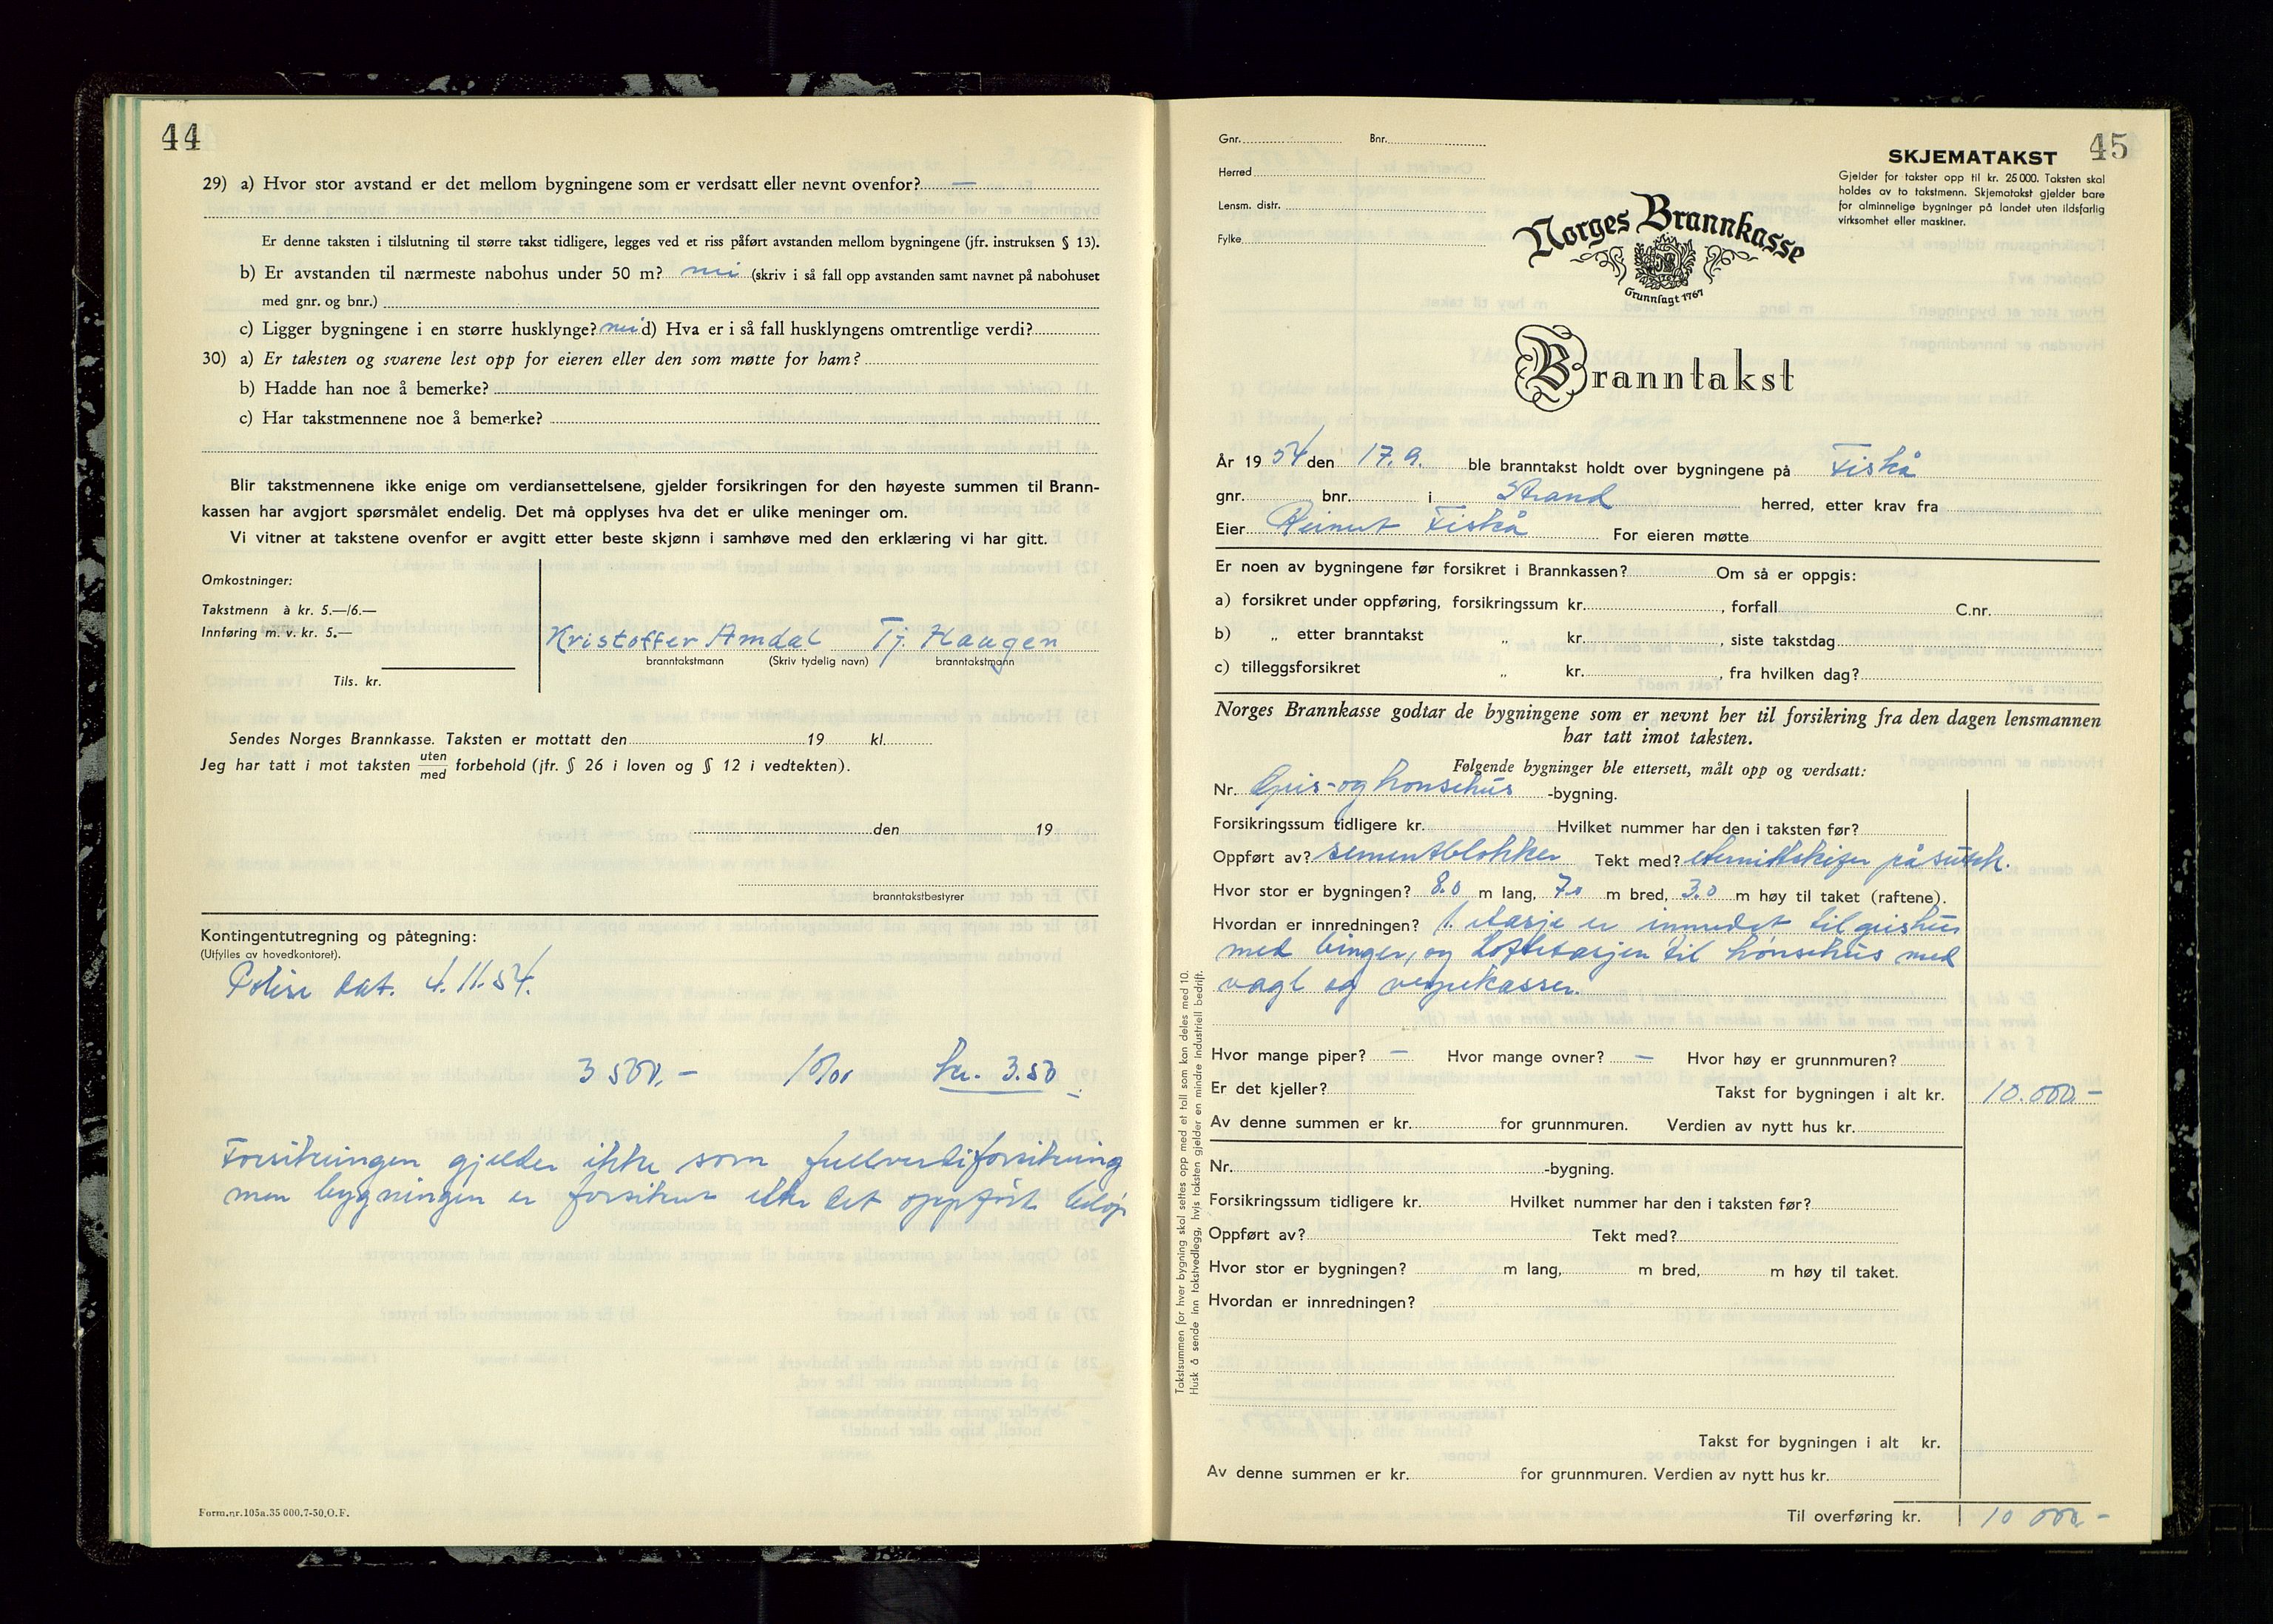 44
29) a) Hvor stor avstand er det mellom bygningene som er verdsatt eller nevnt ovenfor? —
Er denne taksten i tilslutning til større takst tidligere, legges ved et riss påført avstanden mellom bygningene (jfr. instruksen § 13).
b) Er avstanden til nærmeste nabohus under 50 m? nei (skriv i så fall opp avstanden samt navnet på nabohuset
med gnr. og bnr.)
c) Ligger bygningene i en større husklynge? nei d) Hva er i så fall husklyngens omtrentlige verdi?
30) a) Er taksten og svarene lest opp for eieren eller den som møtte for ham?
b) Hadde han noe å bemerke?
c) Har takstmennene noe å bemerke?
Blir takstmennene ikke enige om verdiansettelsene, gjelder forsikringen for den høyeste summen til Brann-
kassen har avgjort spørsmålet endelig. Det må opplyses hva det er ulike meninger om.
Vi vitner at takstene ovenfor er avgitt etter beste skjønn i samhøve med den erklæring vi har gitt.
Omkostninger:
Takstmenn à kr. 5.—/6.—
Innføring m. v. kr. 5.—
Tils. kr.
Kristoffer Amdal Tj. Haugen
branntakstmann (Skriv tydelig navn) branntakstmann
Sendes Norges Brannkasse. Taksten er mottatt den 19 kl.
Jeg har tatt i mot taksten uten/med forbehold (jfr. § 26 i loven og § 12 i vedtekten).
den 19
branntakstbestyrer
Kontingentutregning og påtegning:
(Utfylles av hovedkontoret).
Polise dat. 4.11.54.
3 500.- 1 0/00 kr. 3.50
Forsikringen gjelder ikke som fullverdiforsikring
men bygningen er forsikret etter det oppførte beløp
Form.nr.105a.35 000.7-50.O.F.
45
Gnr. Bnr.
Herred
Lensm. distr.
Fylke
SKJEMATAKST
Gjelder for takster opp til kr. 25 000. Taksten skal
holdes av to takstmenn. Skjematakst gjelder bare
for alminnelige bygninger på landet uten ildsfarlig
virksomhet eller maskiner.
Norges Brannkasse
Grunnlagt 1767
Branntakst
År 19 54 den 17.9. ble branntakst holdt over bygningene på Fiskå
gnr. bnr. i Strand herred, etter krav fra
Eier Reinert Fiskå For eieren møtte
Er noen av bygningene før forsikret i Brannkassen? Om så er oppgis:
a) forsikret under oppføring, forsikringssum kr. , forfall C.nr.
b) „ etter branntakst „ kr. , siste takstdag
c) tilleggsforsikret „ kr. , fra hvilken dag?
Norges Brannkasse godtar de bygningene som er nevnt her til forsikring fra den dagen lensmannen
har tatt imot taksten.
Følgende bygninger ble ettersett, målt opp og verdsatt:
Nr. Gris- og hønsehus -bygning.
Forsikringssum tidligere kr. Hvilket nummer har den i taksten før?
Oppført av? sementblokker Tekt med? eternittskifer på sutak.
Hvor stor er bygningen? 8.0 m lang, 7.0 m bred, 3.0 m høy til taket (raftene).
Hvordan er innredningen? 1. etasje er innredet til grishus
med binger, og loftetasjen til hønsehus med
vagl og verpekasser.
Hvor mange piper? — Hvor mange ovner? — Hvor høy er grunnmuren?
Er det kjeller? Takst for bygningen i alt kr. 10.000 -
Av denne summen er kr. for grunnmuren. Verdien av nytt hus kr.
Nr. -bygning.
Forsikringssum tidligere kr. Hvilket nummer har den i taksten før?
Oppført av? Tekt med?
Hvor stor er bygningen? m lang, m bred, m høy til taket.
Hvordan er innredningen?
Takst for bygningen i alt kr.
Av denne summen er kr. for grunnmuren. Verdien av nytt hus kr.
Til overføring kr. 10 000 -
Takstsummen for hver bygning skal settes opp med et tall som kan deles med 10.
Husk å sende inn takstvedlegg, hvis taksten gjelder en mindre industriell bedrift.